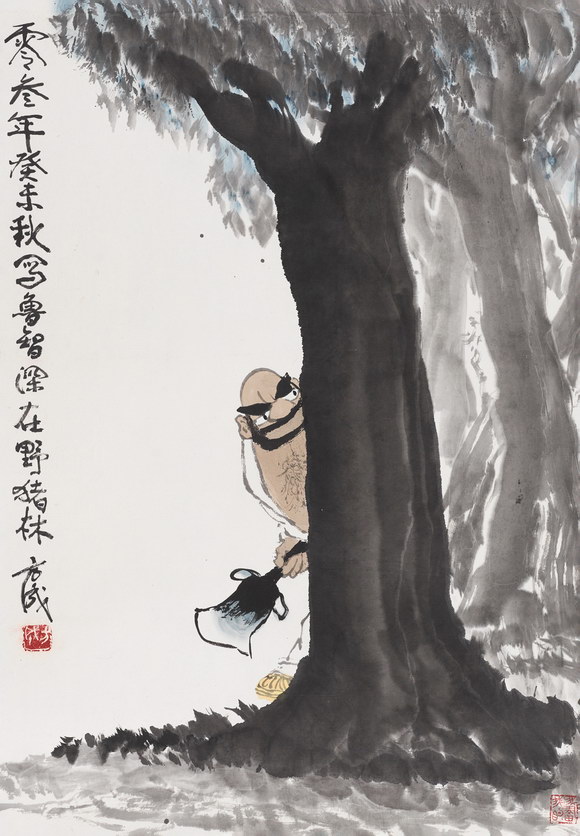 零叁年癸未秋写鲁智深在野猪林
方成